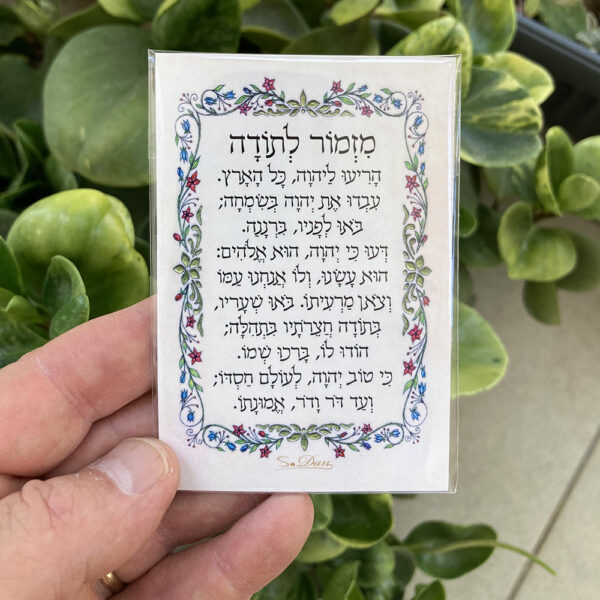 מִזְמוֹר לְתוֹדָה
הָרִיעוּ לַיהוָה, כָּל הָאָרֶץ.
עִבְדוּ אֶת יְהוָה בְּשִׂמְחָה;
בֹּאוּ לְפָנָיו, בִּרְנָנָה.
דְּעוּ כִּי יְהוָה, הוּא אֱלֹהִים:
הוּא עָשָׂנוּ, וְלוֹ אֲנַחְנוּ עַמּוֹ
וְצֹאן מַרְעִיתוֹ. בֹּאוּ שְׁעָרָיו,
בְּתוֹדָה חֲצֵרֹתָיו בִּתְהִלָּה;
הוֹדוּ לוֹ, בָּרְכוּ שְׁמוֹ.
כִּי טוֹב יְהוָה, לְעוֹלָם חַסְדּוֹ;
וְעַד דֹּר וָדֹר, אֱמוּנָתוֹ.
S. Dan